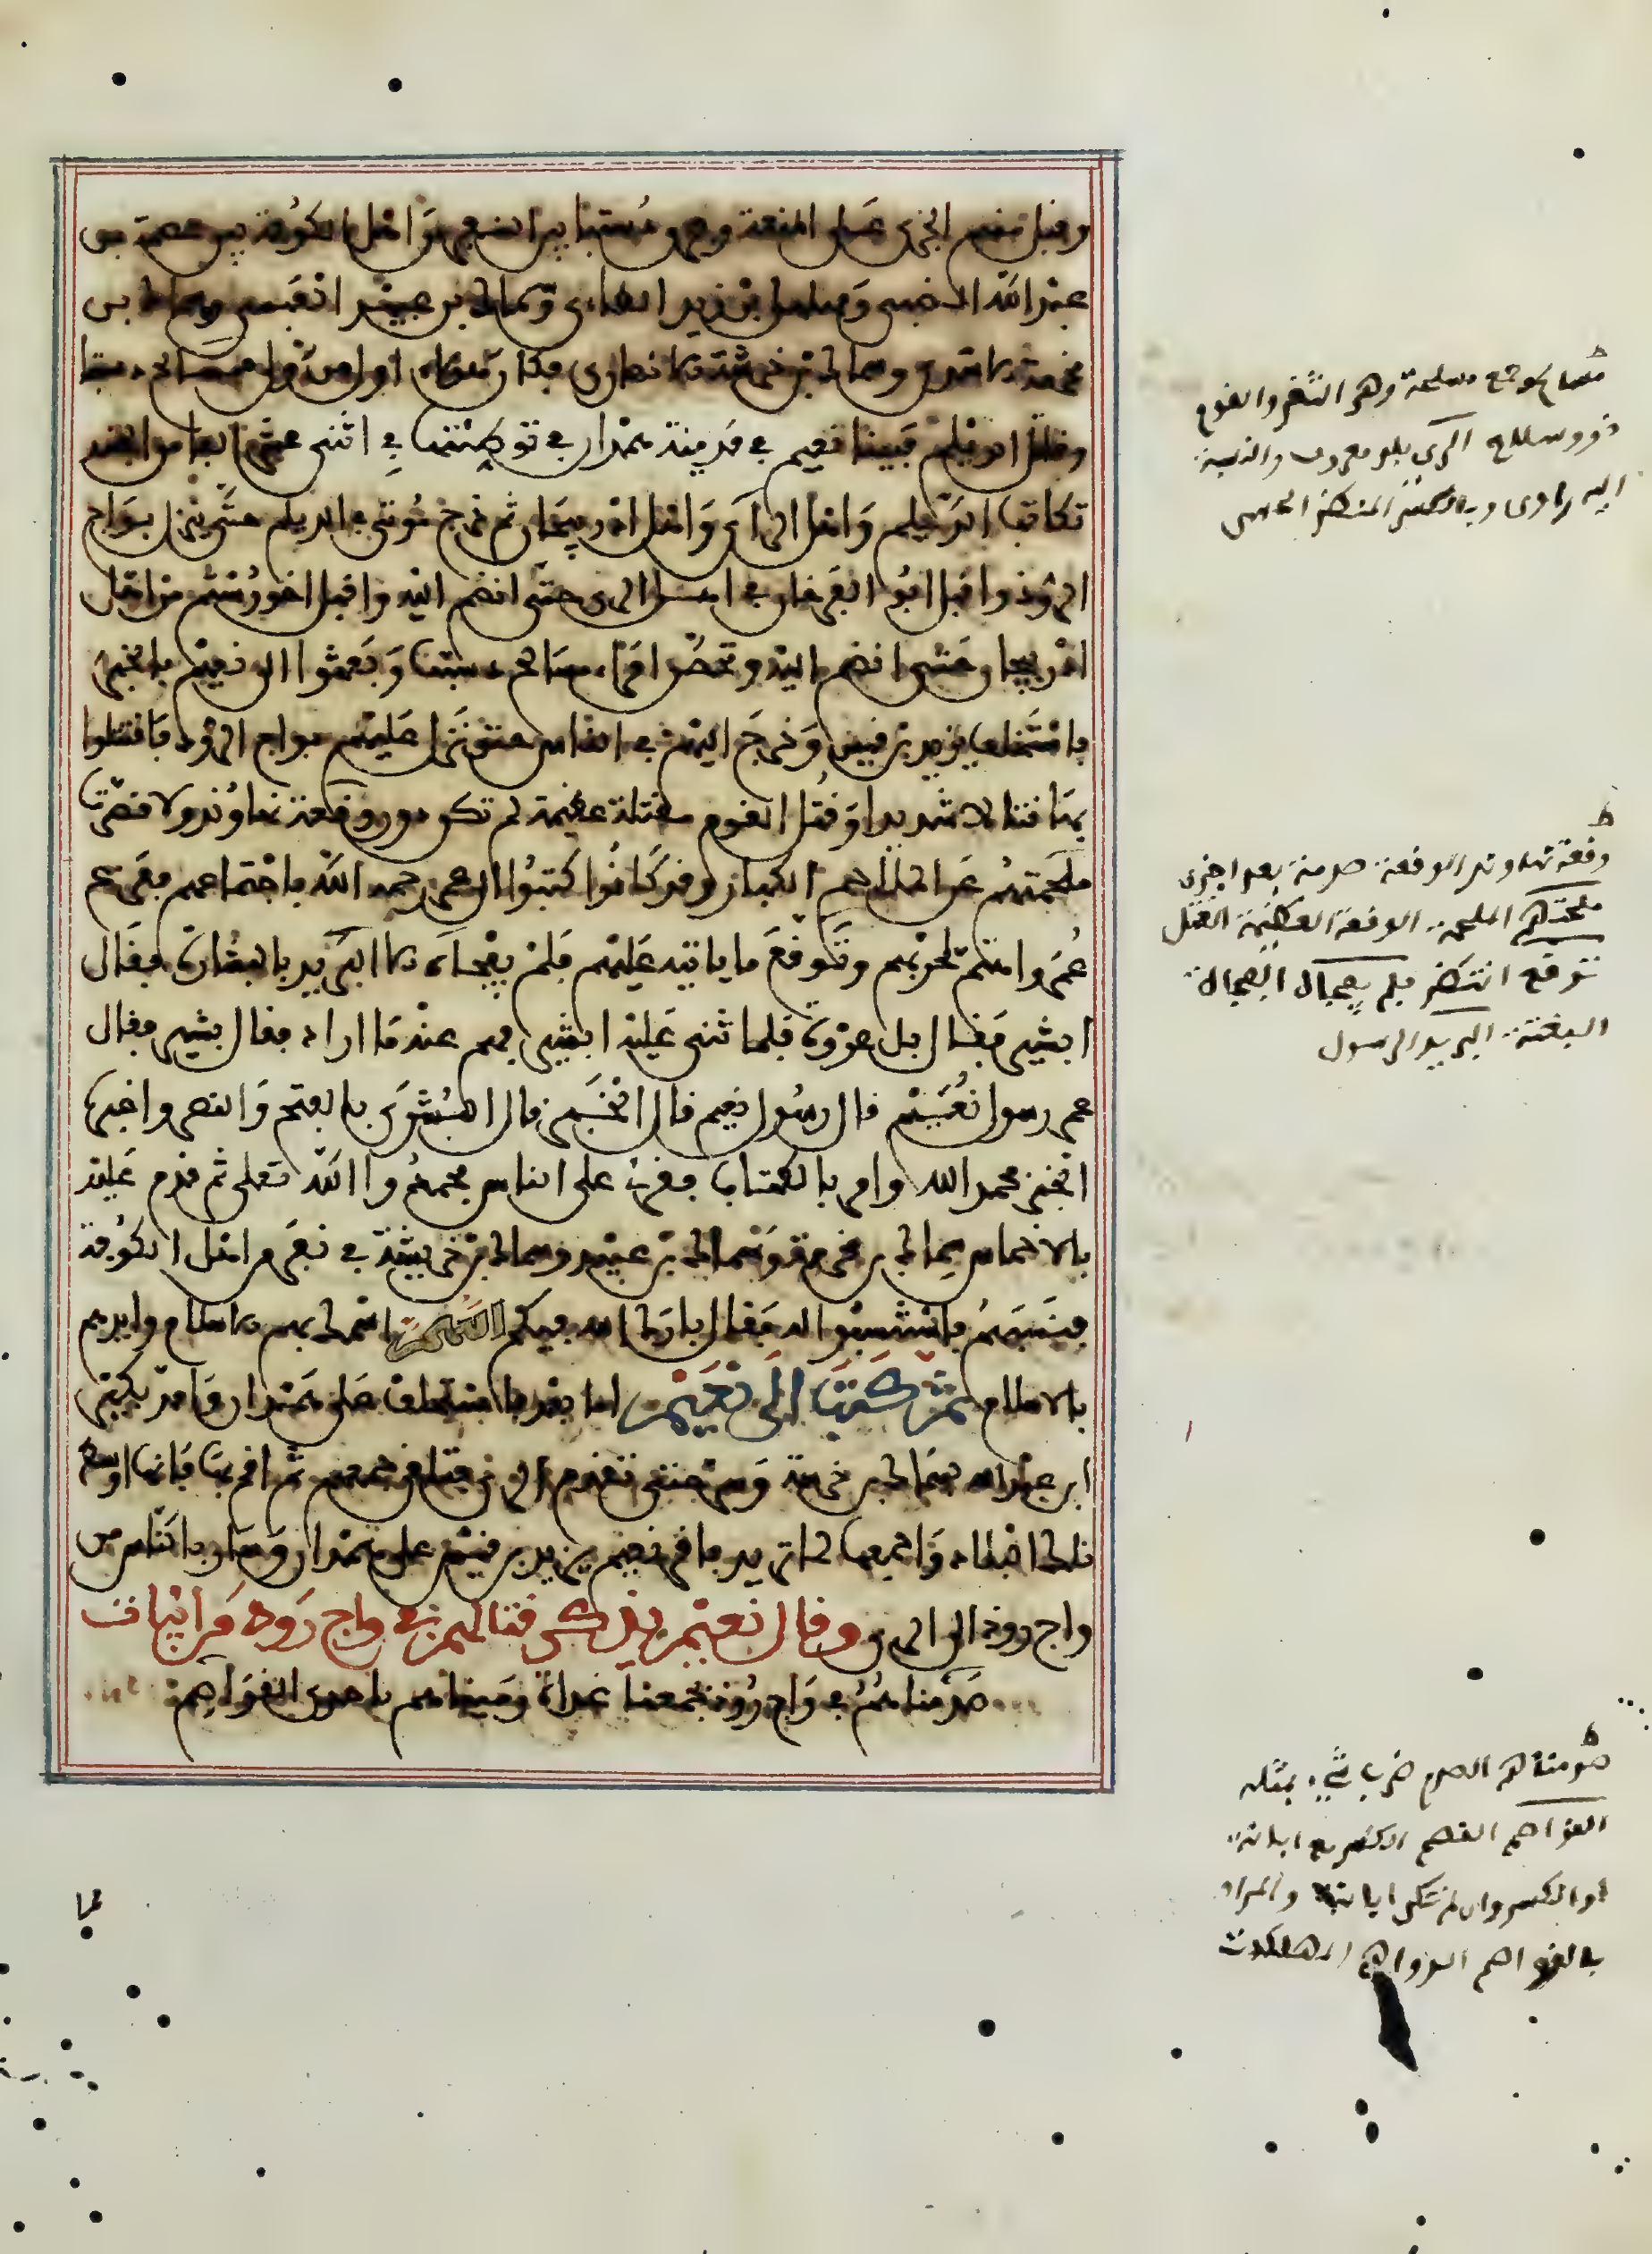 وقبل منهم الجزى على المنعة وفرق دستبا بين نفر من اهل الكوفة بين عصمة بن
عبد الله الضبي ومهلهل بن زيد الطائي وسماك بن عبيد العبسي وسماك بن
مخرمة الاسدي وسماك بن خرشة الانصاري فكان هؤلاء اول من ولي مسالح دستبا
وقاتل الديلم فبينا نعيم في مدينة همدان في توطئتها في اثنى عشر الفا من الجند
تكاتب الديلم واهل الري واهل اذربيجان ثم خرج موتى في الديلم حتى ينزل بواج
الروذ واقبل ابو الفرخان في اهل الري حتى انضم اليه واقبل اخو رستم من اهل
اذربيجان حتى انضم اليه وتحصن امراء مسالح دستبا وبعثوا الى نعيم بالخبر
فاستخلف يزيد بن قيس وخرج اليهم في الناس حتى نزل عليهم بواج الروذ فاقتتلوا
بها قتالا شديدا وقتل القوم مقتلة عظيمة لم تكن دون وقعة نهاوند ولا قصرت
ملحمتهم عن الملاحم الكبار وقد كانوا كتبوا الى عمر رحمه الله باجتماعهم ففزع
عمر واهتم لحربهم وتوقع ما ياتيه عليهم فلم يفجاه الا البريد بالبشارة فقال
ابشير فقال بل عروة فلما ثنى عليه ابشير فهم عندما اراد فقال بشير فقال
عمر رسول نعيم قال رسول نعيم قال الخبر قال البشرى بالفتح والنصر واخبره
الخبر فحمد الله وامر بالكتاب فقرئ على الناس فحمدوا الله تعلى ثم قدم عليه
بالاخماس سماك بن مخرمة وسماك بن عبيد وسماك بن خرشة في نفر من اهل الكوفة
فنسبهم فانتسبوا له فقال بارك الله فيكم اللهم اسمك بهم الاسلام وايدهم
بالاسلام ثم كتب الى نعيم اما بعد فاستخلف على همدان وامدد بكير
ابن عبد الله بسماك بن خرشة وسر حتى تقدم الري فتلقى جمعهم ثم اقم بها فانها اوسط
تلك البلاد واجمعها لما تريد فاقر نعيم يزيد بن قيس على همدان وسار بالناس من
واج روذ الى الري وقال نعيم يذكر قتالهم في واج روذ من ابيات
صدمناهم في واج روذ بجمعنا غداة رميناهم باحدى القواصم
ط
مسالح جمع مسلحة وهو الثغر والقوم
ذوو سلاح الري بلد معروف والنسبة
اليه رازي
ط
وقعة نهاوند الوقعة صدمة بعد اخرى
ملحمتهم الملحمة الوقعة العظيمة القتل
توقع انتظر فلم يفجاه الفجاة
البغتة البريد الرسول
ط
صدمناهم الصدم ضرب شيء بمثله
القواصم القصم الكسر مع ابانة
او الكسر وان لم تكن ابانة والمراد
بالقواصم الدواهي المهلكات